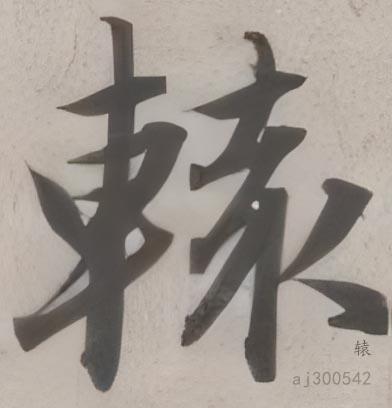 轅
辕
aj300542